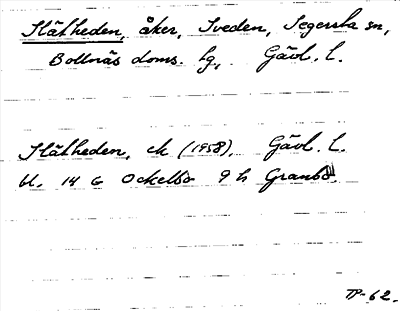 Slätheden, åker, Sveden, Segersta sn,
Bollnäs doms. hg, Gävl. l.
Slätheden, ek (1958), Gävl. l.
bl. 14 G Ockelbo 9 h Granbo.
TP-62.